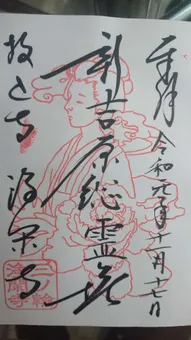 奉拝
令和元年十一月十七日
新吉原総霊塔
投込寺 浄閑寺